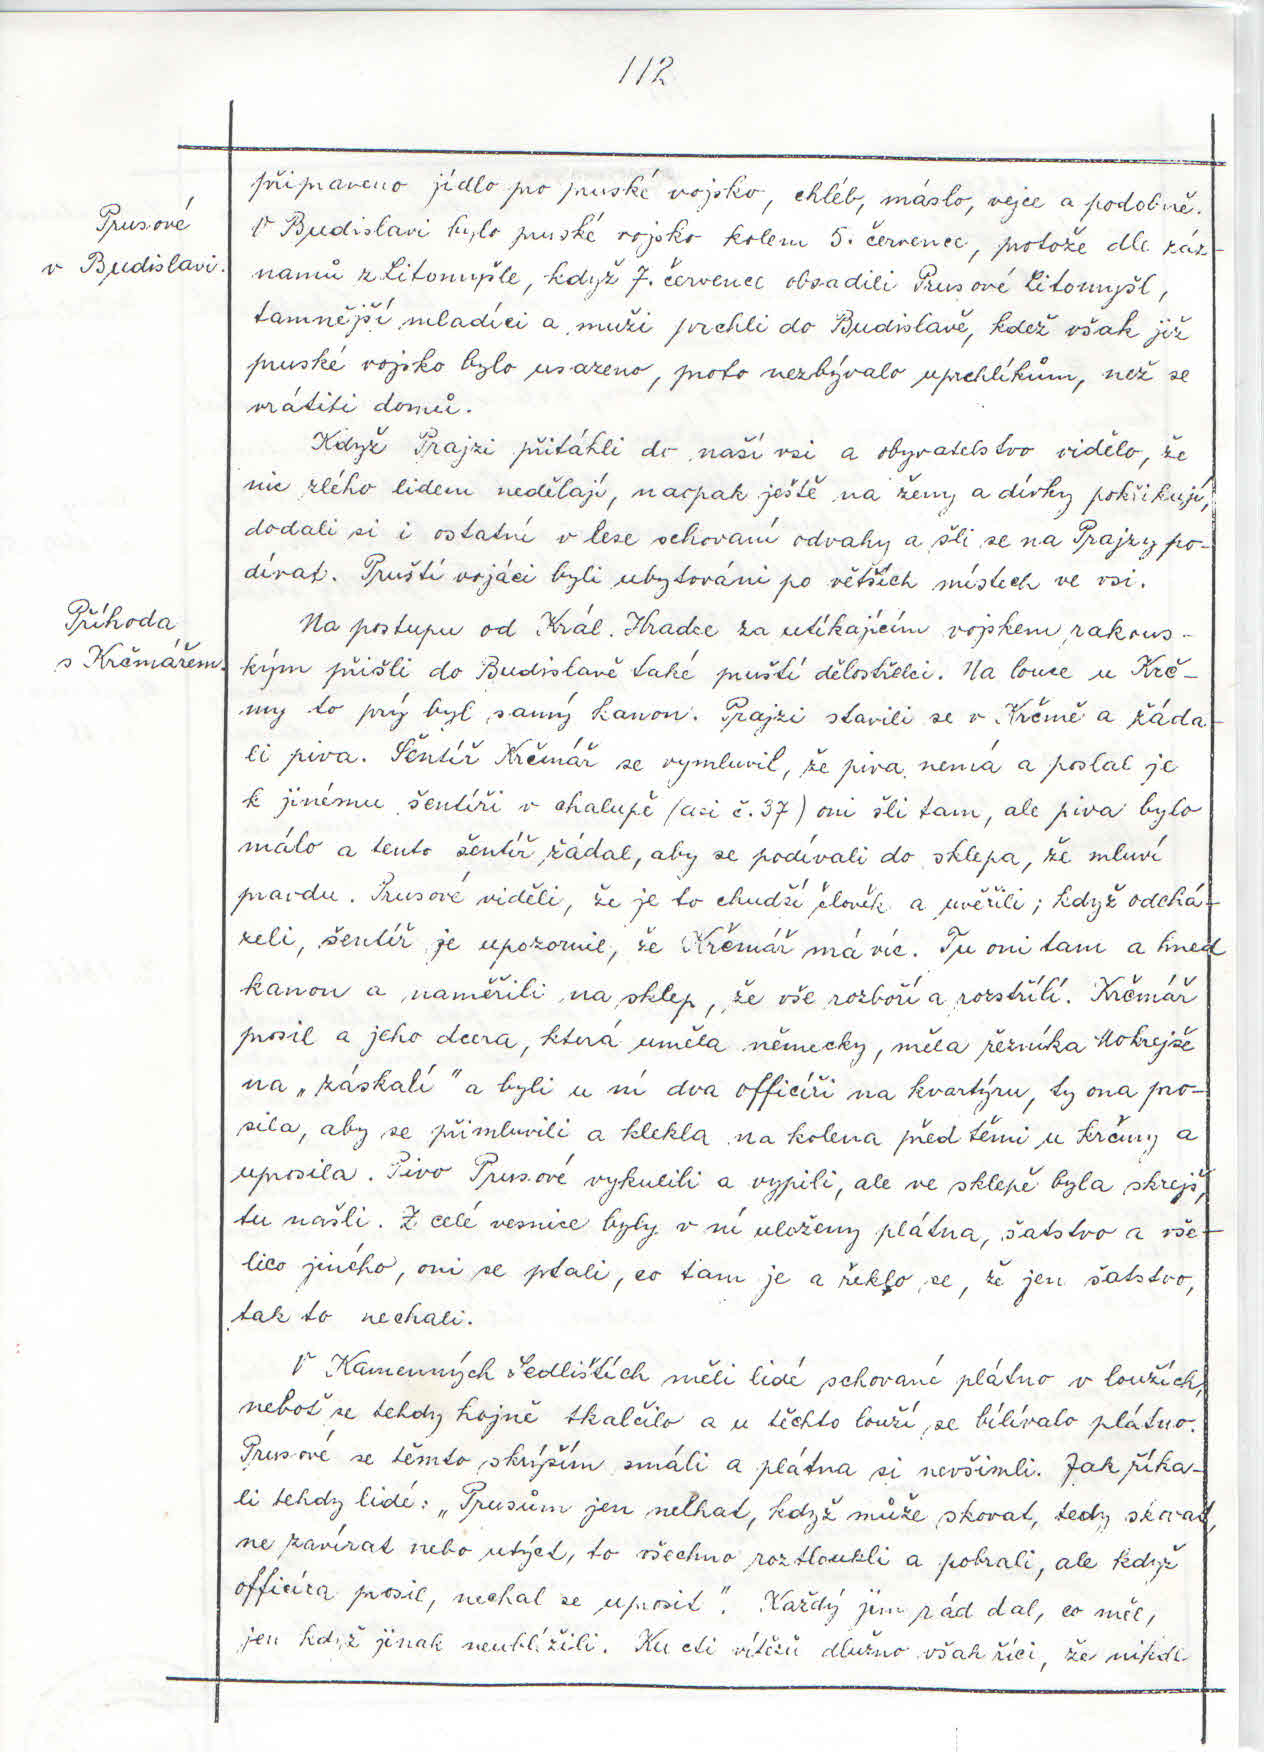 112
připraveno jídlo pro pruské vojsko, chléb, máslo, vejce a podobně.
Prusové
v Budislavi.
V Budislavi bylo pruské vojsko kolem 5. července, protože dle záz-
namů z Litomyšle, když 7. července obsadili Prusové Litomyšl,
tamnější mladíci a muži prchli do Budislavě, kdež však již
pruské vojsko bylo usazeno, proto nezbývalo uprchlíkům, než se
vrátiti domů.
Když Prajzi přitáhli do naší vsi a obyvatelstvo vidělo, že
nic zlého lidem nedělají, naopak ještě na ženy a dívky pokřikují,
dodali si i ostatní v lese schovaní odvahy a šli se na Prajzy po-
dívat. Pruští vojáci byli ubytováni po větších místech ve vsi.
Příhoda
s Krčmářem.
Na postupu od Král. Hradce za utíkajícím vojskem rakous-
kým přišli do Budislavě také pruští dělostřelci. Na louce u Krč-
my to prý byl samý kanon. Prajzi stavili se v Krčmě a žáda-
li piva. Šentíř Krčmář se vymluvil, že piva nemá a poslal je
k jinému šentíři v chalupě (asi č. 37) oni šli tam, ale piva bylo
málo a tento šentíř žádal, aby se podívali do sklepa, že mluví
pravdu. Prusové viděli, že je to chudší člověk a uvěřili; když odchá-
zeli, šentíř je upozornil, že Krčmář má víc. Tu oni tam a hned
kanon a naměřili na sklep, že vše rozboří a rozstřílí. Krčmář
prosil a jeho dcera, která uměla německy, měla řezníka Mokrejše
na „záskalí" a byli u ní dva officíři na kvartýru, ty ona pro-
sila, aby se přimluvili a klekla na kolena před těmi u krčmy a
uprosila. Pivo Prusové vykulili a vypili, ale ve sklepě byla skrejš,
tu našli. Z celé vesnice byly v ní uloženy plátna, šatstvo a vše-
lico jiného, oni se ptali, co tam je a řeklo se, že jen šatstvo,
tak to nechali.
V Kamenných Sedlištích měli lidé schované plátno v loužích,
neboť se tehdy hojně tkalčilo a u těchto louží se bílívalo plátno.
Prusové se těmto skrýším smáli a plátna si nevšimli. Jak říka-
li tehdy lidé: „Prusům jen nelhat, když může skovat, tedy skovat,
ne zavírat nebo utýct, to všechno roztloukli a pobrali, ale když
officíra prosil, nechal se uprosit". Každý jim rád dal, co měl,
jen když jinak neublížili. Ku cti vítězů dlužno však říci, že nikde